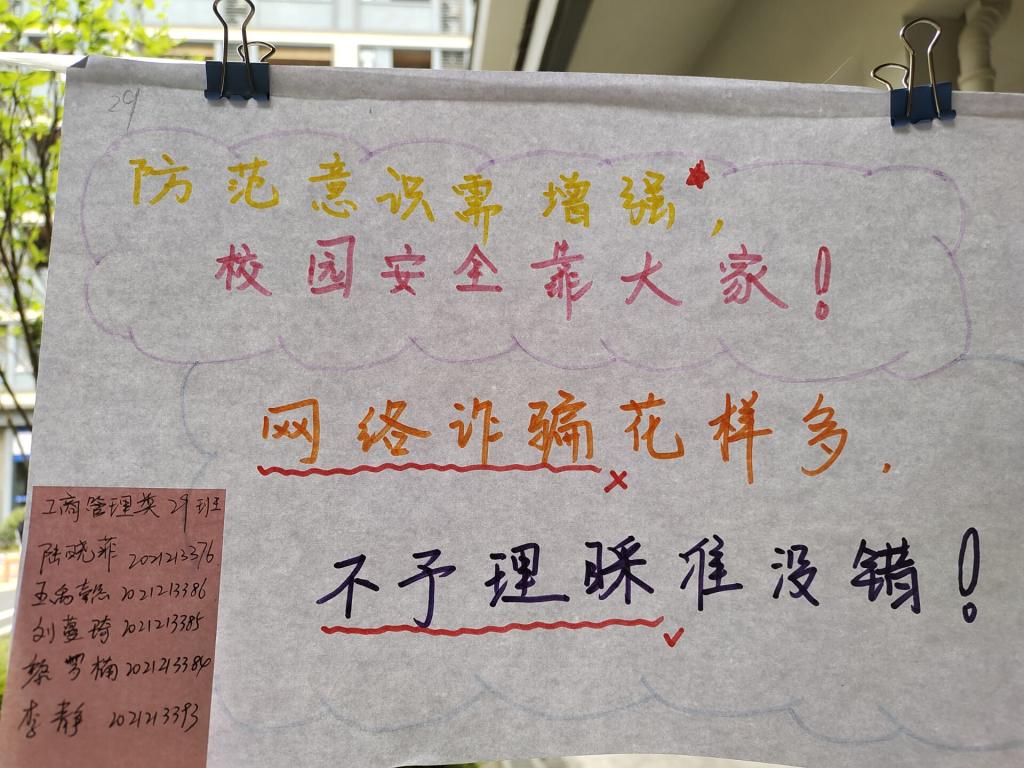 29
防范意识需增强,
校园安全靠大家!
网络诈骗花样多,
不予理睬准没错!
工商管理类 29班
陆晓菲 2021213376
2021213386
刘 琦 2021213385
黎 楠 2021213384
李静 2021213393